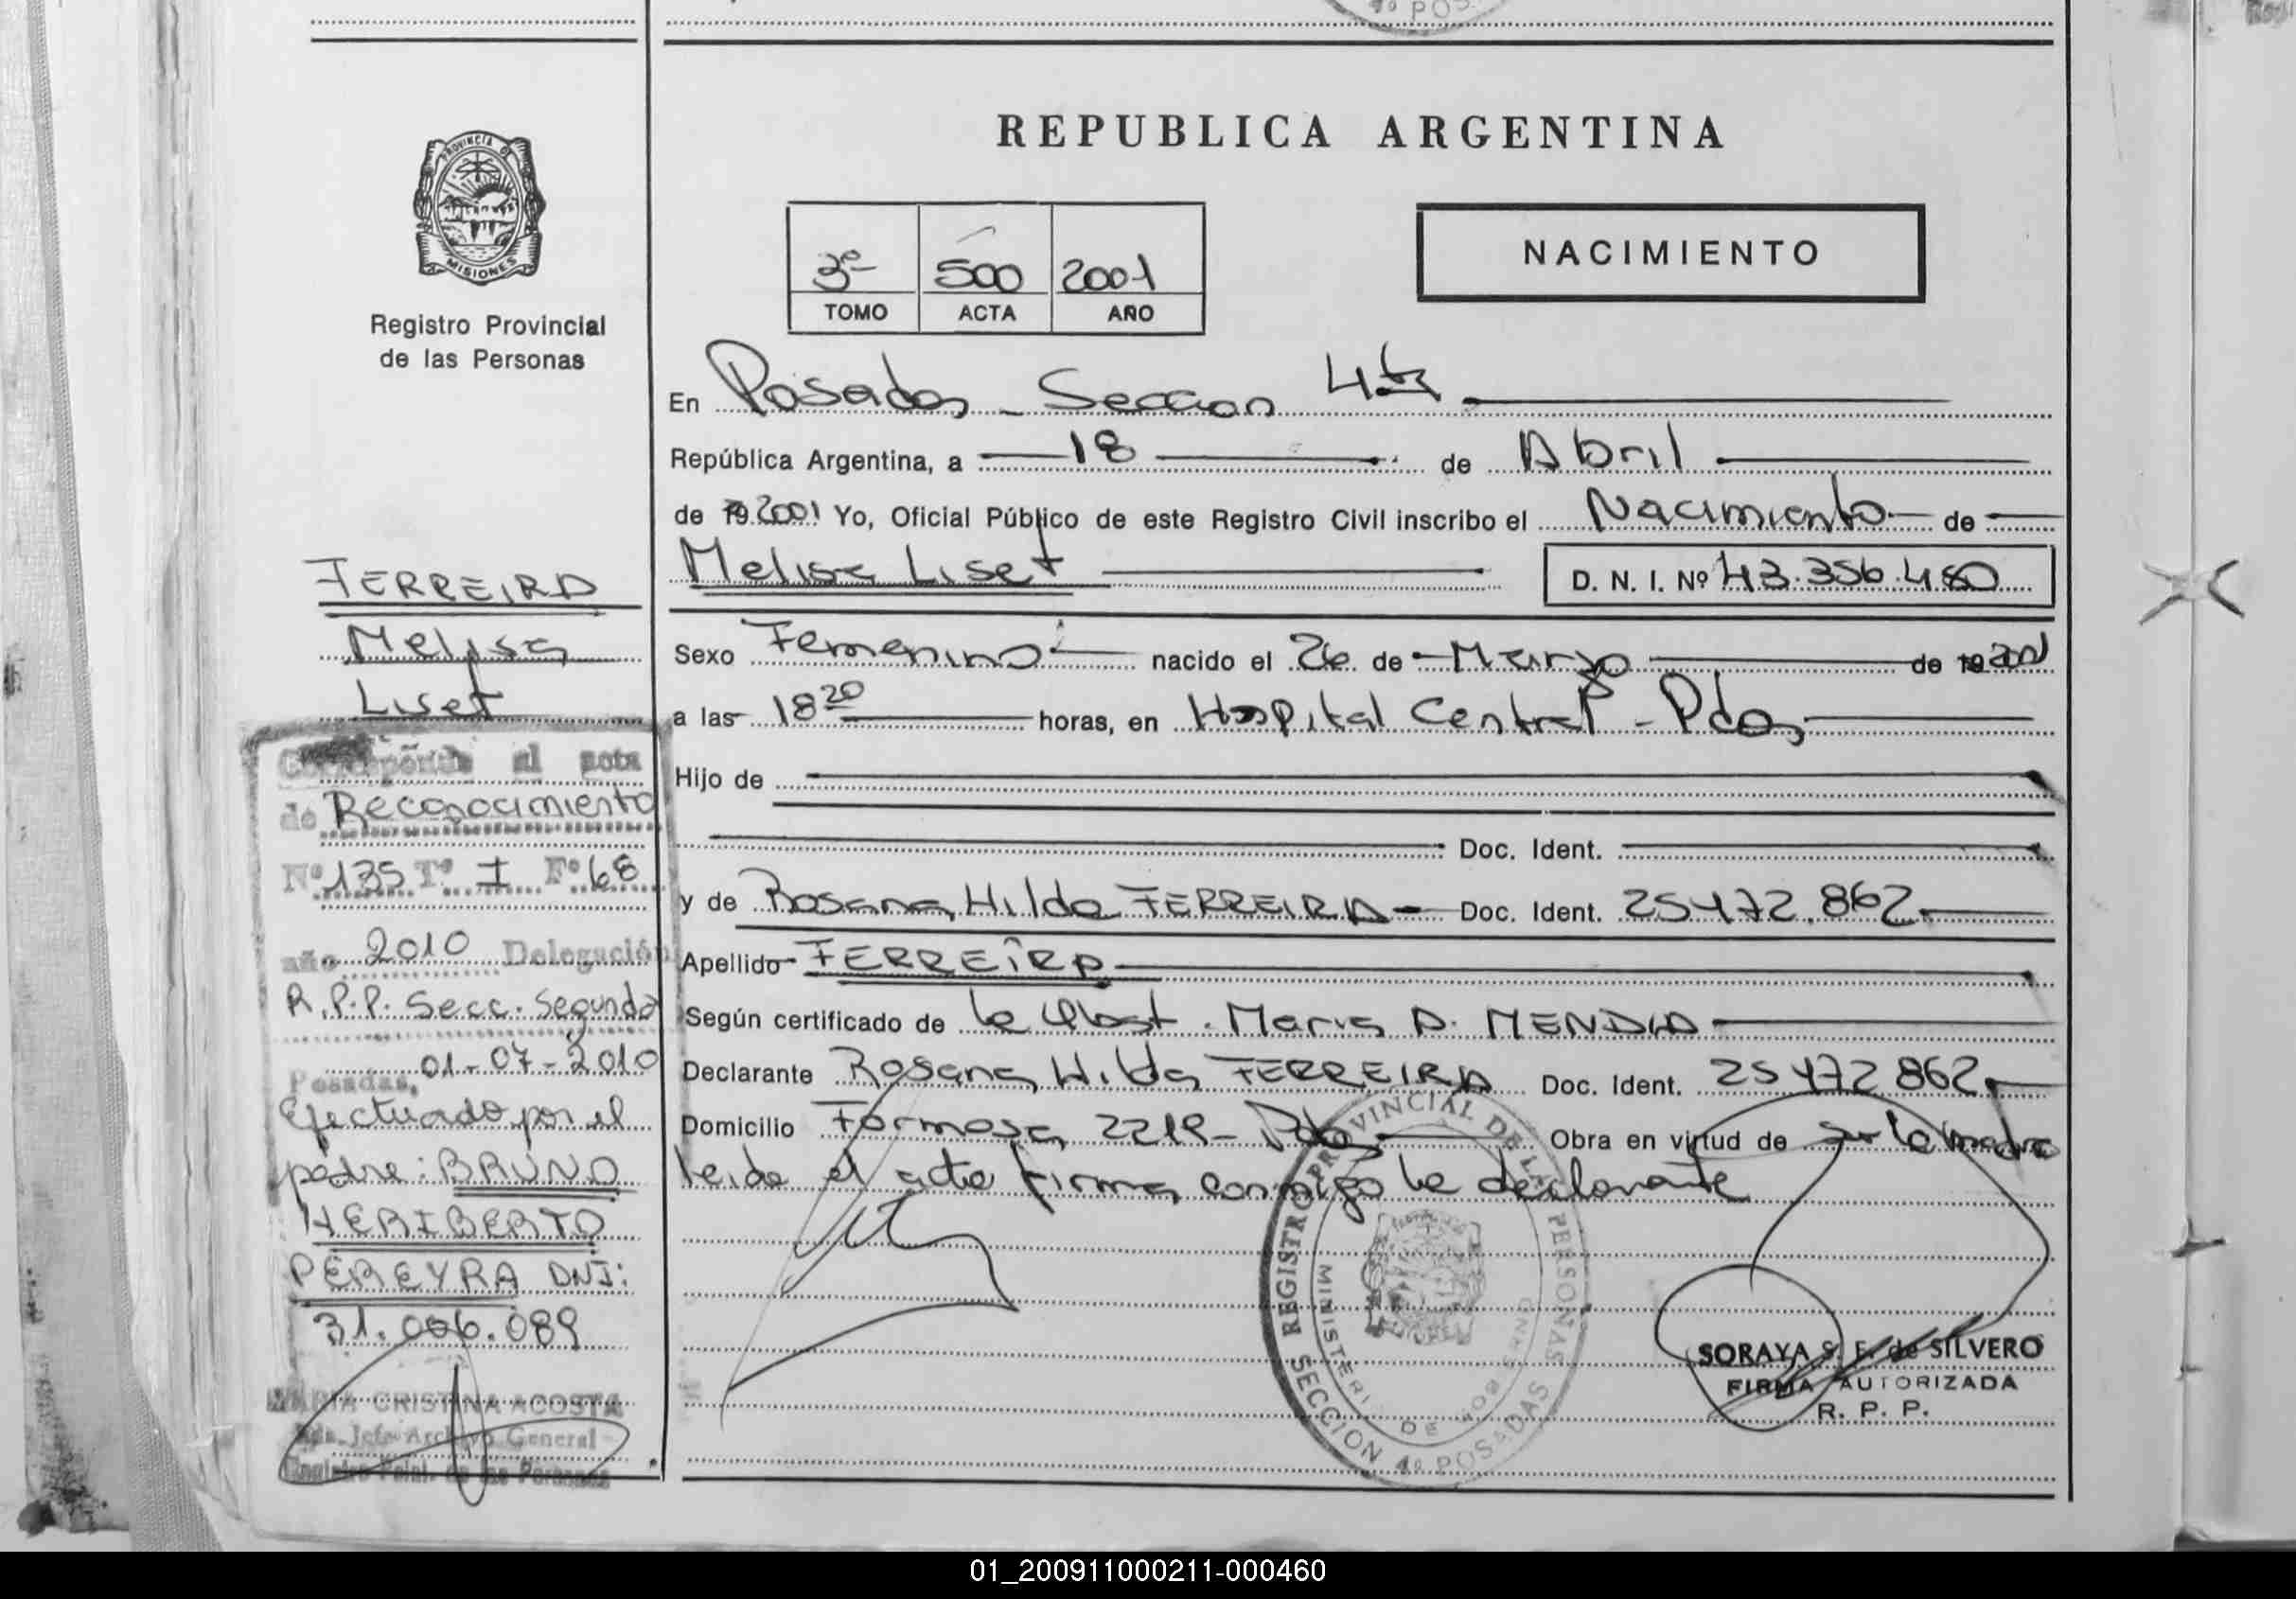 REPUBLICA ARGENTINA
PROVINCIA DE
MISIONES
Registro Provincial
de las Personas
3º 500 2001
TOMO ACTA AÑO
NACIMIENTO
En Posadas - Seccion 4ta
República Argentina, a 18 de Abril
de 19 2001 Yo, Oficial Público de este Registro Civil inscribo el Nacimiento de
Melisa Liset D. N. I. Nº 43.356.480
Sexo Femenino nacido el 26 de Marzo de 19 2001
a las 18 20 horas, en Hospital Central - Pdas
Hijo de
Doc. Ident.
y de Rosana Hilda FERREIRA Doc. Ident. 25472.862
Apellido FERREIRA
Según certificado de la Obst. Maria A. MENDIA
Declarante Rosana Hilda FERREIRA Doc. Ident. 25472862
Domicilio Formosa 2219 - Pdas Obra en virtud de ser la madre
leida el acta firma conmigo la declarante
FERREIRA
Melisa
Liset
Corresponde al acta
de Reconocimiento
Nº 135 Tº I Fº 68
año 2010 Delegación
R.P.P. Secc. Segunda
Posadas, 01-07-2010
Efectuado por el
padre: BRUNO
HERIBERTO
PEREYRA DNI:
31.006.089
MARIA CRISTINA ACOSTA
Jefe Archivo General
Registro Pcial. de las Personas
REGISTRO PROVINCIAL DE LAS PERSONAS
MINISTERIO DE GOBIERNO
SECCION 4º POSADAS
SORAYA S. E. de SILVERO
FIRMA AUTORIZADA
R. P. P.
01_200911000211-000460